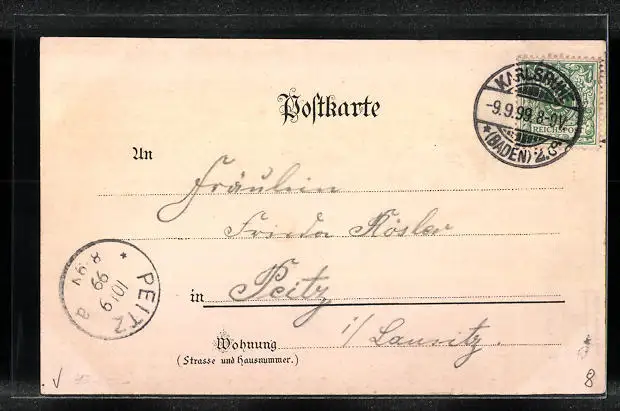 Postkarte
KARLSRUHE
-9.9.99.8-9V.
* (BADEN) 2.a.
REICHSPOST
An
Fräulein
Frieda Rösler
in Peitz
i/ Lausitz.
Wohnung
(Strasse und Hausnummer.)
PEITZ
10.9
99
8-9V
a
8